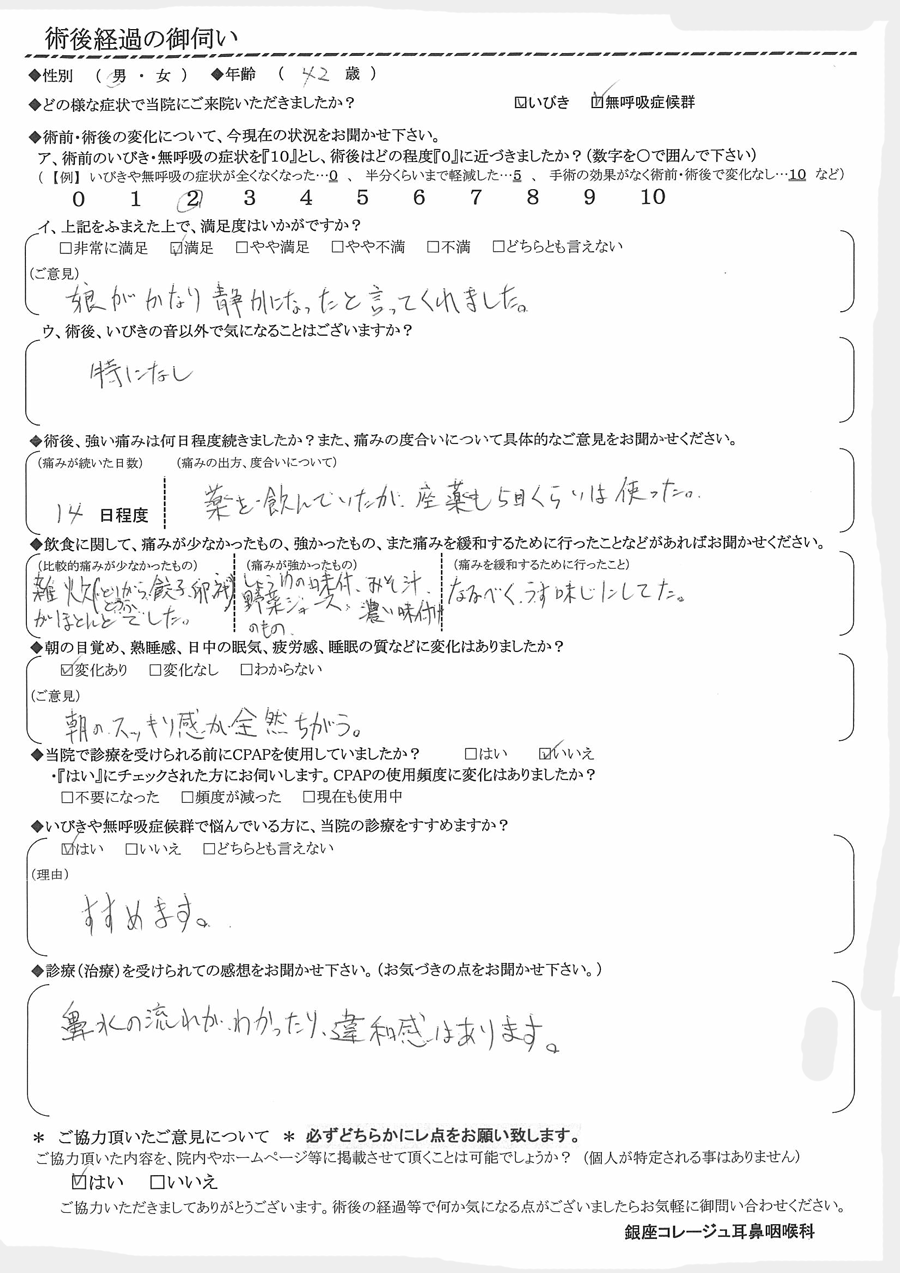 術後経過の御伺い
◆性別 （ 男 ・ 女 ） ◆年齢 （ 42 歳 ）
◆どの様な症状で当院にご来院いただきましたか？ ☑いびき ☑無呼吸症候群
◆術前・術後の変化について、今現在の状況をお聞かせ下さい。
ア、術前のいびき・無呼吸の症状を『10』とし、術後はどの程度『0』に近づきましたか？（数字を〇で囲んで下さい）
（【例】いびきや無呼吸の症状が全くなくなった…0 、 半分くらいまで軽減した…5 、 手術の効果がなく術前・術後で変化なし…10 など）
0 1 2 3 4 5 6 7 8 9 10
イ、上記をふまえた上で、満足度はいかがですか？
□非常に満足 ☑満足 □やや満足 □やや不満 □不満 □どちらとも言えない
（ご意見）
娘がかなり静かになったと言ってくれました。
ウ、術後、いびきの音以外で気になることはございますか？
特になし
◆術後、強い痛みは何日程度続きましたか？また、痛みの度合いについて具体的なご意見をお聞かせください。
（痛みが続いた日数） （痛みの出方、度合いについて）
14 日程度 薬を飲んでいたが、座薬も5日くらいは使った。
◆飲食に関して、痛みが少なかったもの、強かったもの、また痛みを緩和するために行ったことなどがあればお聞かせください。
（比較的痛みが少なかったもの） （痛みが強かったもの） （痛みを緩和するために行ったこと）
雑炊（とりがら、餃子、卵、
とうふ
がほとんどでした。
しょうゆの味付、みそ汁、
野菜ジュース、濃い味付け
のもの。
なるべく、うす味にしてた。
◆朝の目覚め、熟睡感、日中の眠気、疲労感、睡眠の質などに変化はありましたか？
☑変化あり □変化なし □わからない
（ご意見）
朝の、スッキリ感が全然ちがう。
◆当院で診療を受けられる前にCPAPを使用していましたか？ □はい ☑いいえ
・『はい』にチェックされた方にお伺いします。CPAPの使用頻度に変化はありましたか？
□不要になった □頻度が減った □現在も使用中
◆いびきや無呼吸症候群で悩んでいる方に、当院の診療をすすめますか？
☑はい □いいえ □どちらとも言えない
（理由）
すすめます。
◆診療（治療）を受けられての感想をお聞かせ下さい。（お気づきの点をお聞かせ下さい。）
鼻水の流れが、わかったり、違和感はあります。
＊ ご協力頂いたご意見について ＊ 必ずどちらかにレ点をお願い致します。
ご協力頂いた内容を、院内やホームページ等に掲載させて頂くことは可能でしょうか？（個人が特定される事はありません）
☑はい □いいえ
ご協力いただきましてありがとうございます。術後の経過等で何か気になる点がございましたらお気軽に御問い合わせください。
銀座コレージュ耳鼻咽喉科